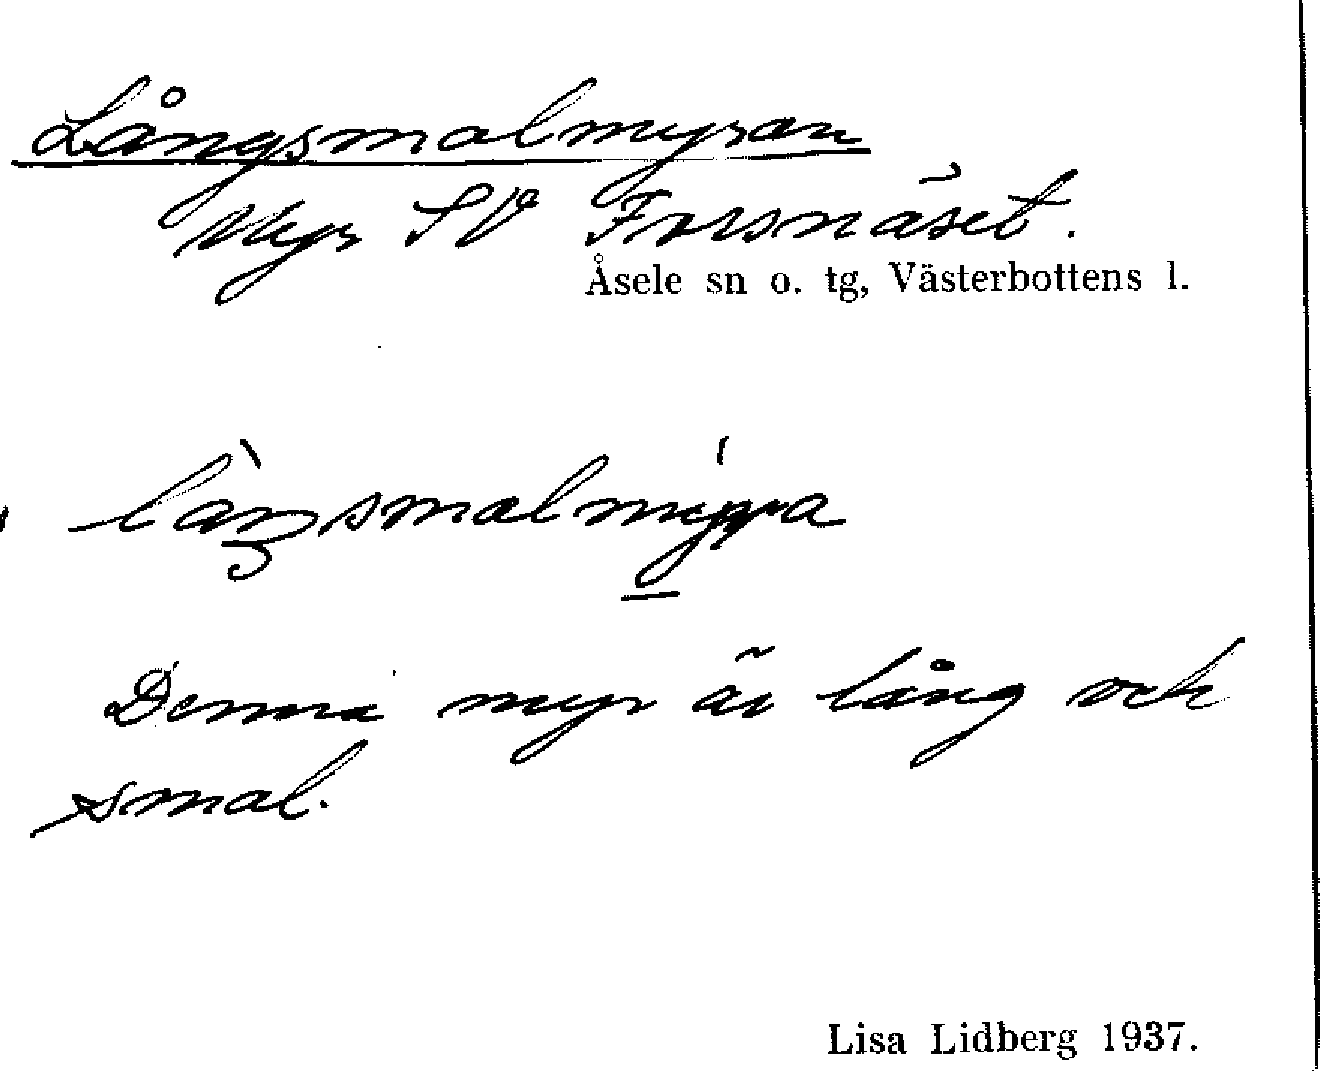 Långsmalmyran
Myr SV Forsnäset.
Åsele sn o. tg, Västerbottens l.
Denna myr är lång och
smal.
Lisa Lidberg 1937.